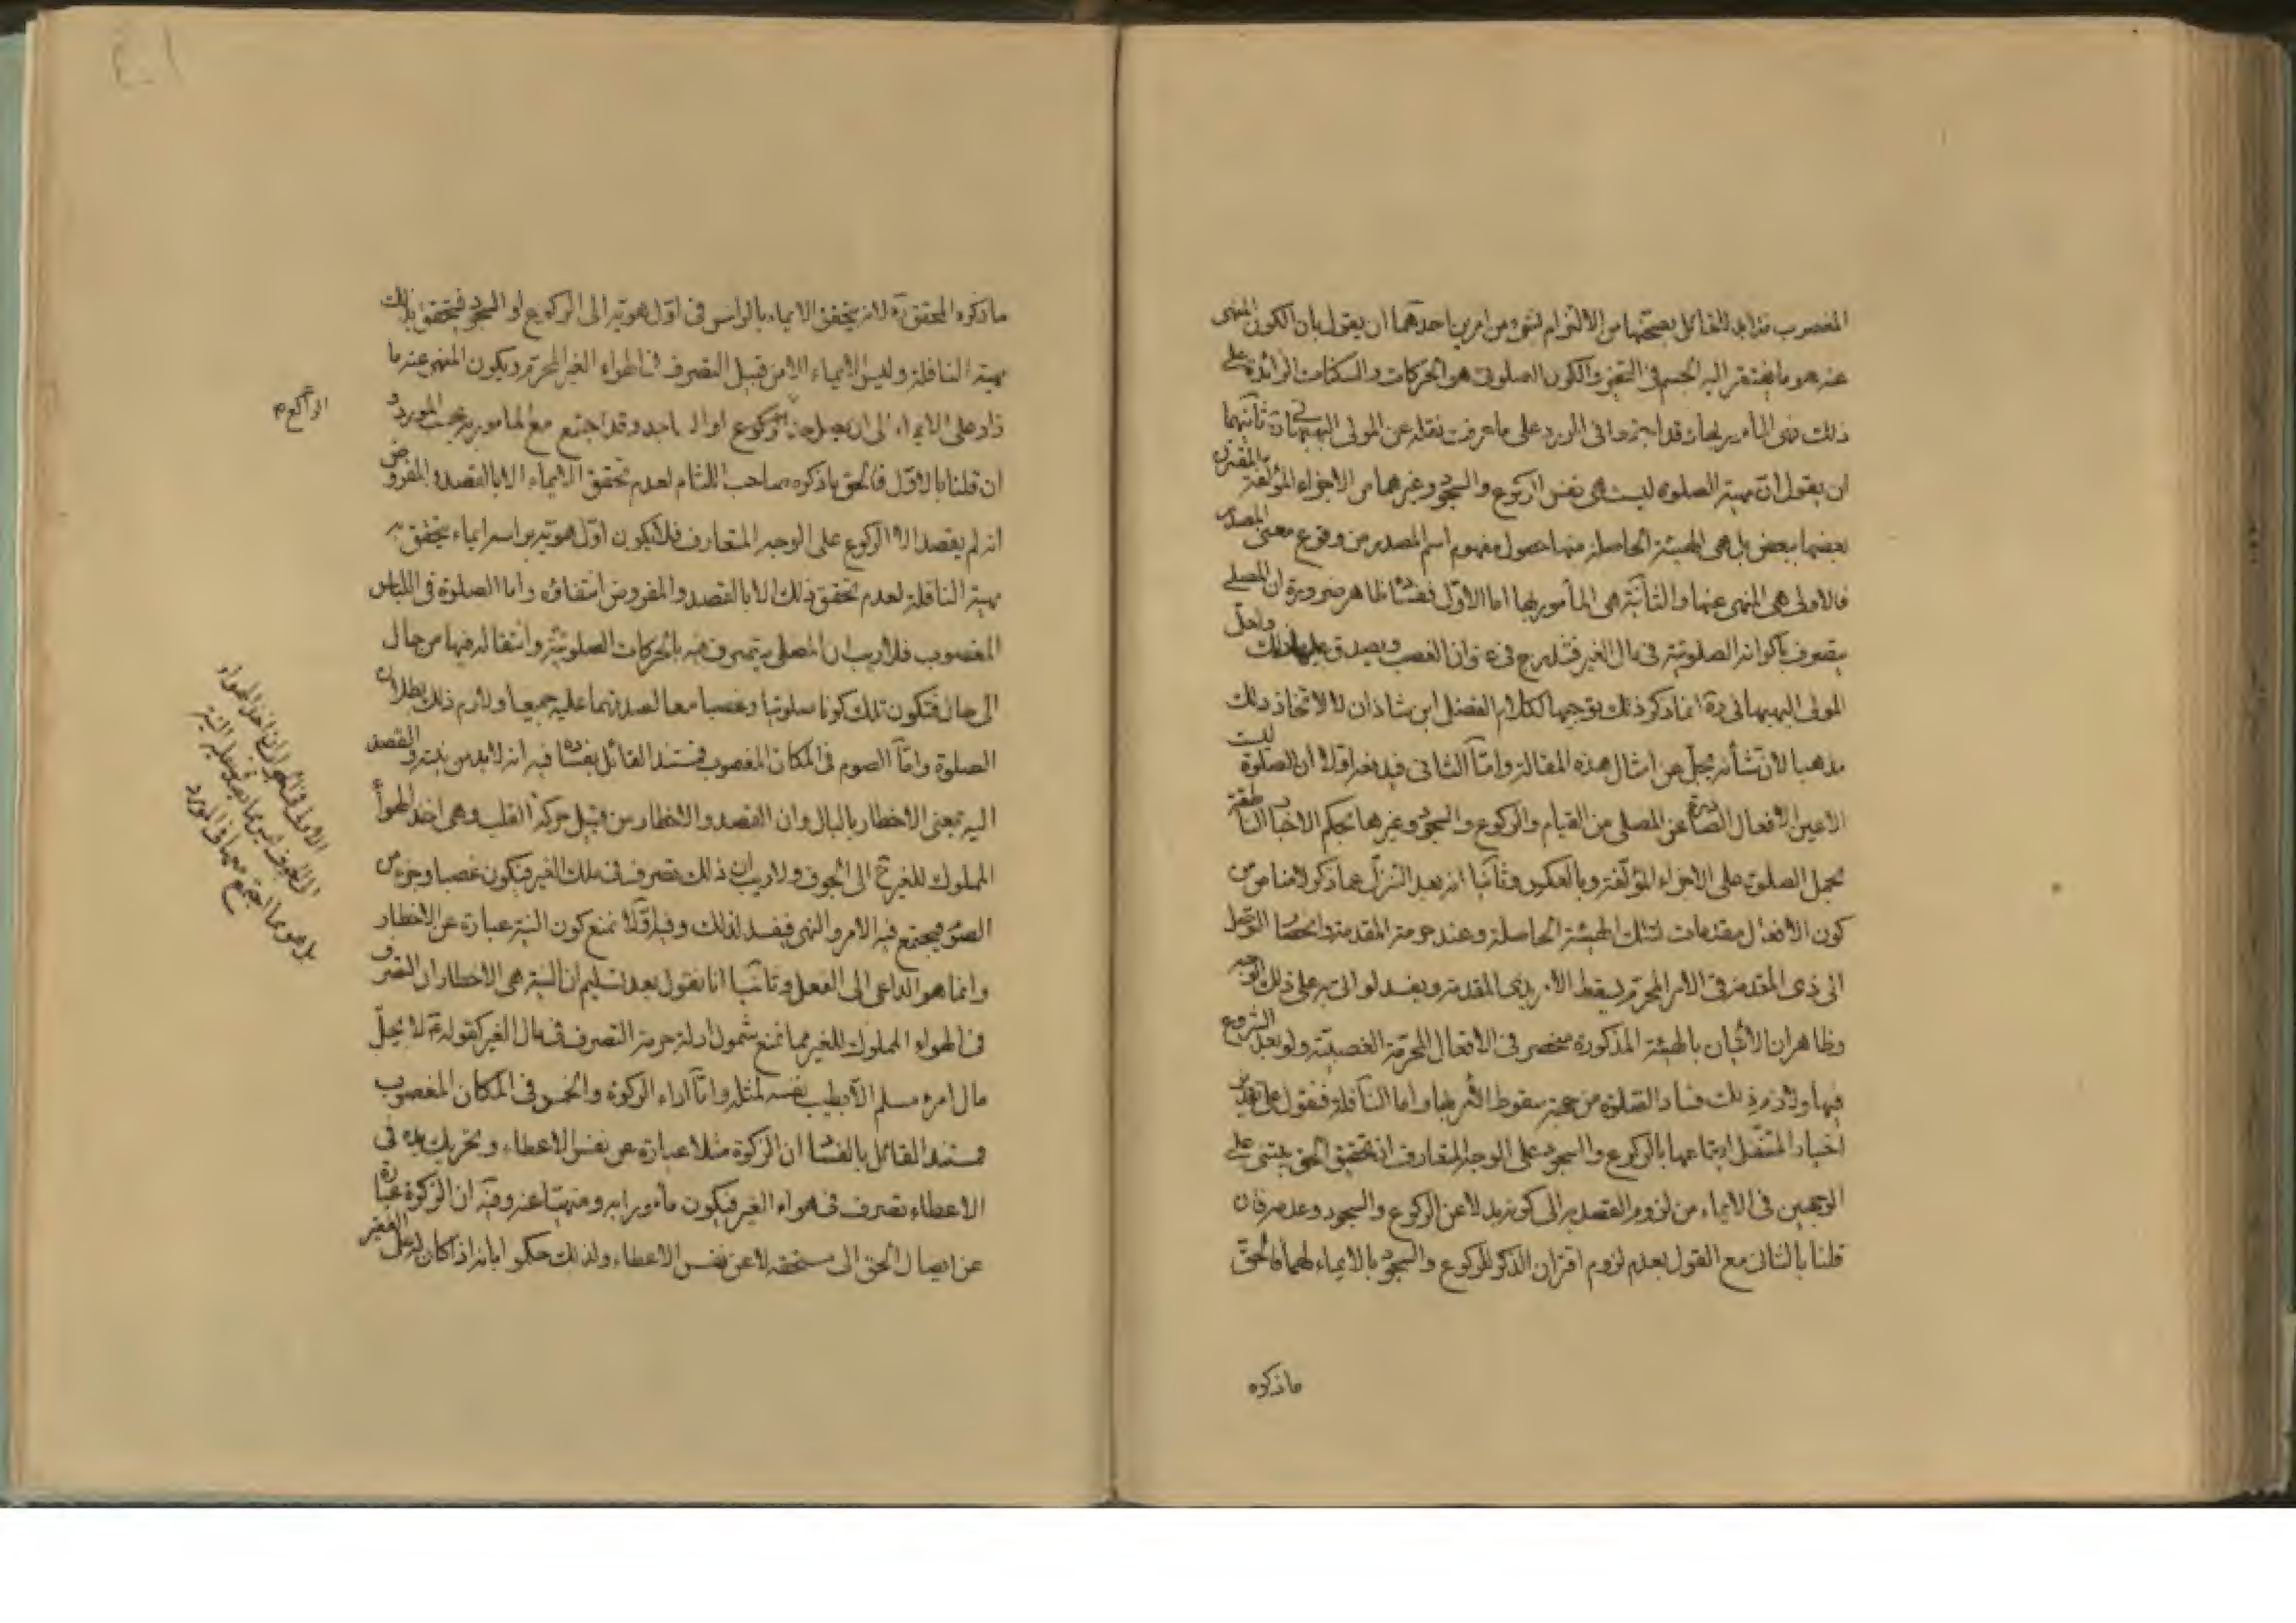 المغصوب فلا بد للقائل بصحتها من الالتزام بشيء من امرين احدهما ان يقول بان الكون المنهى
عنه هو ما يفتقر اليه الجسم فى التحيز والكون الصلوتى هو الحركات والسكنات الزائدة على
ذلك فى المورد على ما عرفت نقله عن المولى البهبهانى ثانيهما
ان يقول ان مهية الصلوة ليست هى نفس الركوع والسجود وغيرهما من الاجزاء المؤلفة المقترن
بعضها ببعض بل هى الهيئة الحاصلة منها حصول مفهوم اسم المصدر من وقوع معنى المصدر
فالاولى هى المنهى عنها والثانية هى المأمور بها اما الاول ففساده ظاهر ضرورة ان المصلى
يتصرف باكوانه الصلوتية فى مال الغير فيندرج فى عنوان الغصب ويصدق عليها ذلك ولعل
المولى البهبهانى ره انما ذكر ذلك توجيها لكلام الفضل ابن شاذان لا لاتخاذ ذلك
مذهبا لان شأنه يجل عن امثال هذه المقالة واما الثانى فيدفعه اولا ان الصلوة ليست
الا عين الافعال الصادرة عن المصلى من القيام والركوع والسجود وغيرها بحكم الاخبار الناطقة
بحمل الصلوة على الاجزاء المؤلفة وبالعكس وثانيا انه بعد التنزل عما ذكر لا مناص من
كون الافعال مقدمات لتلك الهيئة الحاصلة وعند حرمة المقدمة وانحصار التوصل
الى ذى المقدمة فى الامر المحرم يسقط الامر بذى المقدمة ويفسد لو اتى به على ذلك الوجه
وظاهر ان الاتيان بالهيئة المذكورة منحصر فى الافعال المحرمة الغصبية ولو بعد الشروع
فيها ولازم ذلك فساد الصلوة من جهة سقوط الامر بها واما النافلة فنقول على تقدير
اختيار المتنفل ايقاعها بالركوع والسجود على الوجه المتعارف ان تحقيق الحق يبتنى على
الوجهين فى الايماء من لزوم القصد به الى كونه بدلا عن الركوع والسجود وعدمه فان
قلنا بالثانى مع القول بعدم لزوم اقتران الذكر للركوع والسجود بالايماء لهما فالحق
ماذكره
ما ذكره المحقق ره لانه يتحقق الايماء بالراس فى اول هويه الى الركوع او السجود فيتحقق بذلك
مهية النافلة وليس الايماء الا من قبيل التصرف فى الهواء الغير المحرم ويكون المنهى عنه ما
زاد على الايماء الى ان يصل حد الركوع او الساجد وقد اجتمع مع المأمور به بحسب المورد و
ان قلنا بالاول فالحق ما ذكره صاحب اللثام لعدم تحقق الايماء الا بالقصد والمفروض
انه لم يقصد الا الركوع على الوجه المتعارف فلا يكون اول هويه براسه ايماء يتحقق به
مهية النافلة لعدم تحقق ذلك الا بالقصد والمفروض انتفائه واما الصلوة فى اللباس
المغصوب فلا ريب ان المصلى يتصرف فيه بالحركات الصلوتية وانتقاله فيها من حال
الى حال فتكون تلك كونا صلوتيا وغصبا معا لصدقهما عليه جميعا ولازم ذلك بطلان
الصلوة واما الصوم فى المكان المغصوب فمستند القائل بفساده فيه انه لابد من نية والقصد
اليه بمعنى الاخطار بالبال وان القصد والاخطار من قبيل حركة القلب وهى اخذ للهواء
المملوك للغير ح الى الجوف ولا ريب ان ذلك تصرف فى ملك الغير فيكون غصبا وجزء من
الصوم فيجتمع فيه الامر والنهى فيفسد لذلك وفيه اولا نمنع كون النية عبارة عن الاخطار
وانما هو الداعى الى الفعل وثانيا انا نقول بعد تسليم ان النية هى الاخطار ان التصرف
فى الهواء المملوك للغير مما نمنع شمول ادلة حرمة التصرف فى مال الغير كقوله ع لا يحل
مال امرء مسلم الا بطيب نفسه لمثله واما اداء الزكوة والخمس فى المكان المغصوب
فمستند القائل بالفساد ان الزكوة مثلا عبارة عن نفس الاعطاء وتحريك يده فى
الاعطاء تصرف فى هواء الغير فيكون مأمورا به ومنهيا عنه وفيه ان الزكوة عبارة
عن ايصال الحق الى مستحقه لا عن نفس الاعطاء ولذلك حكموا بانه اذا كان له على الفقير